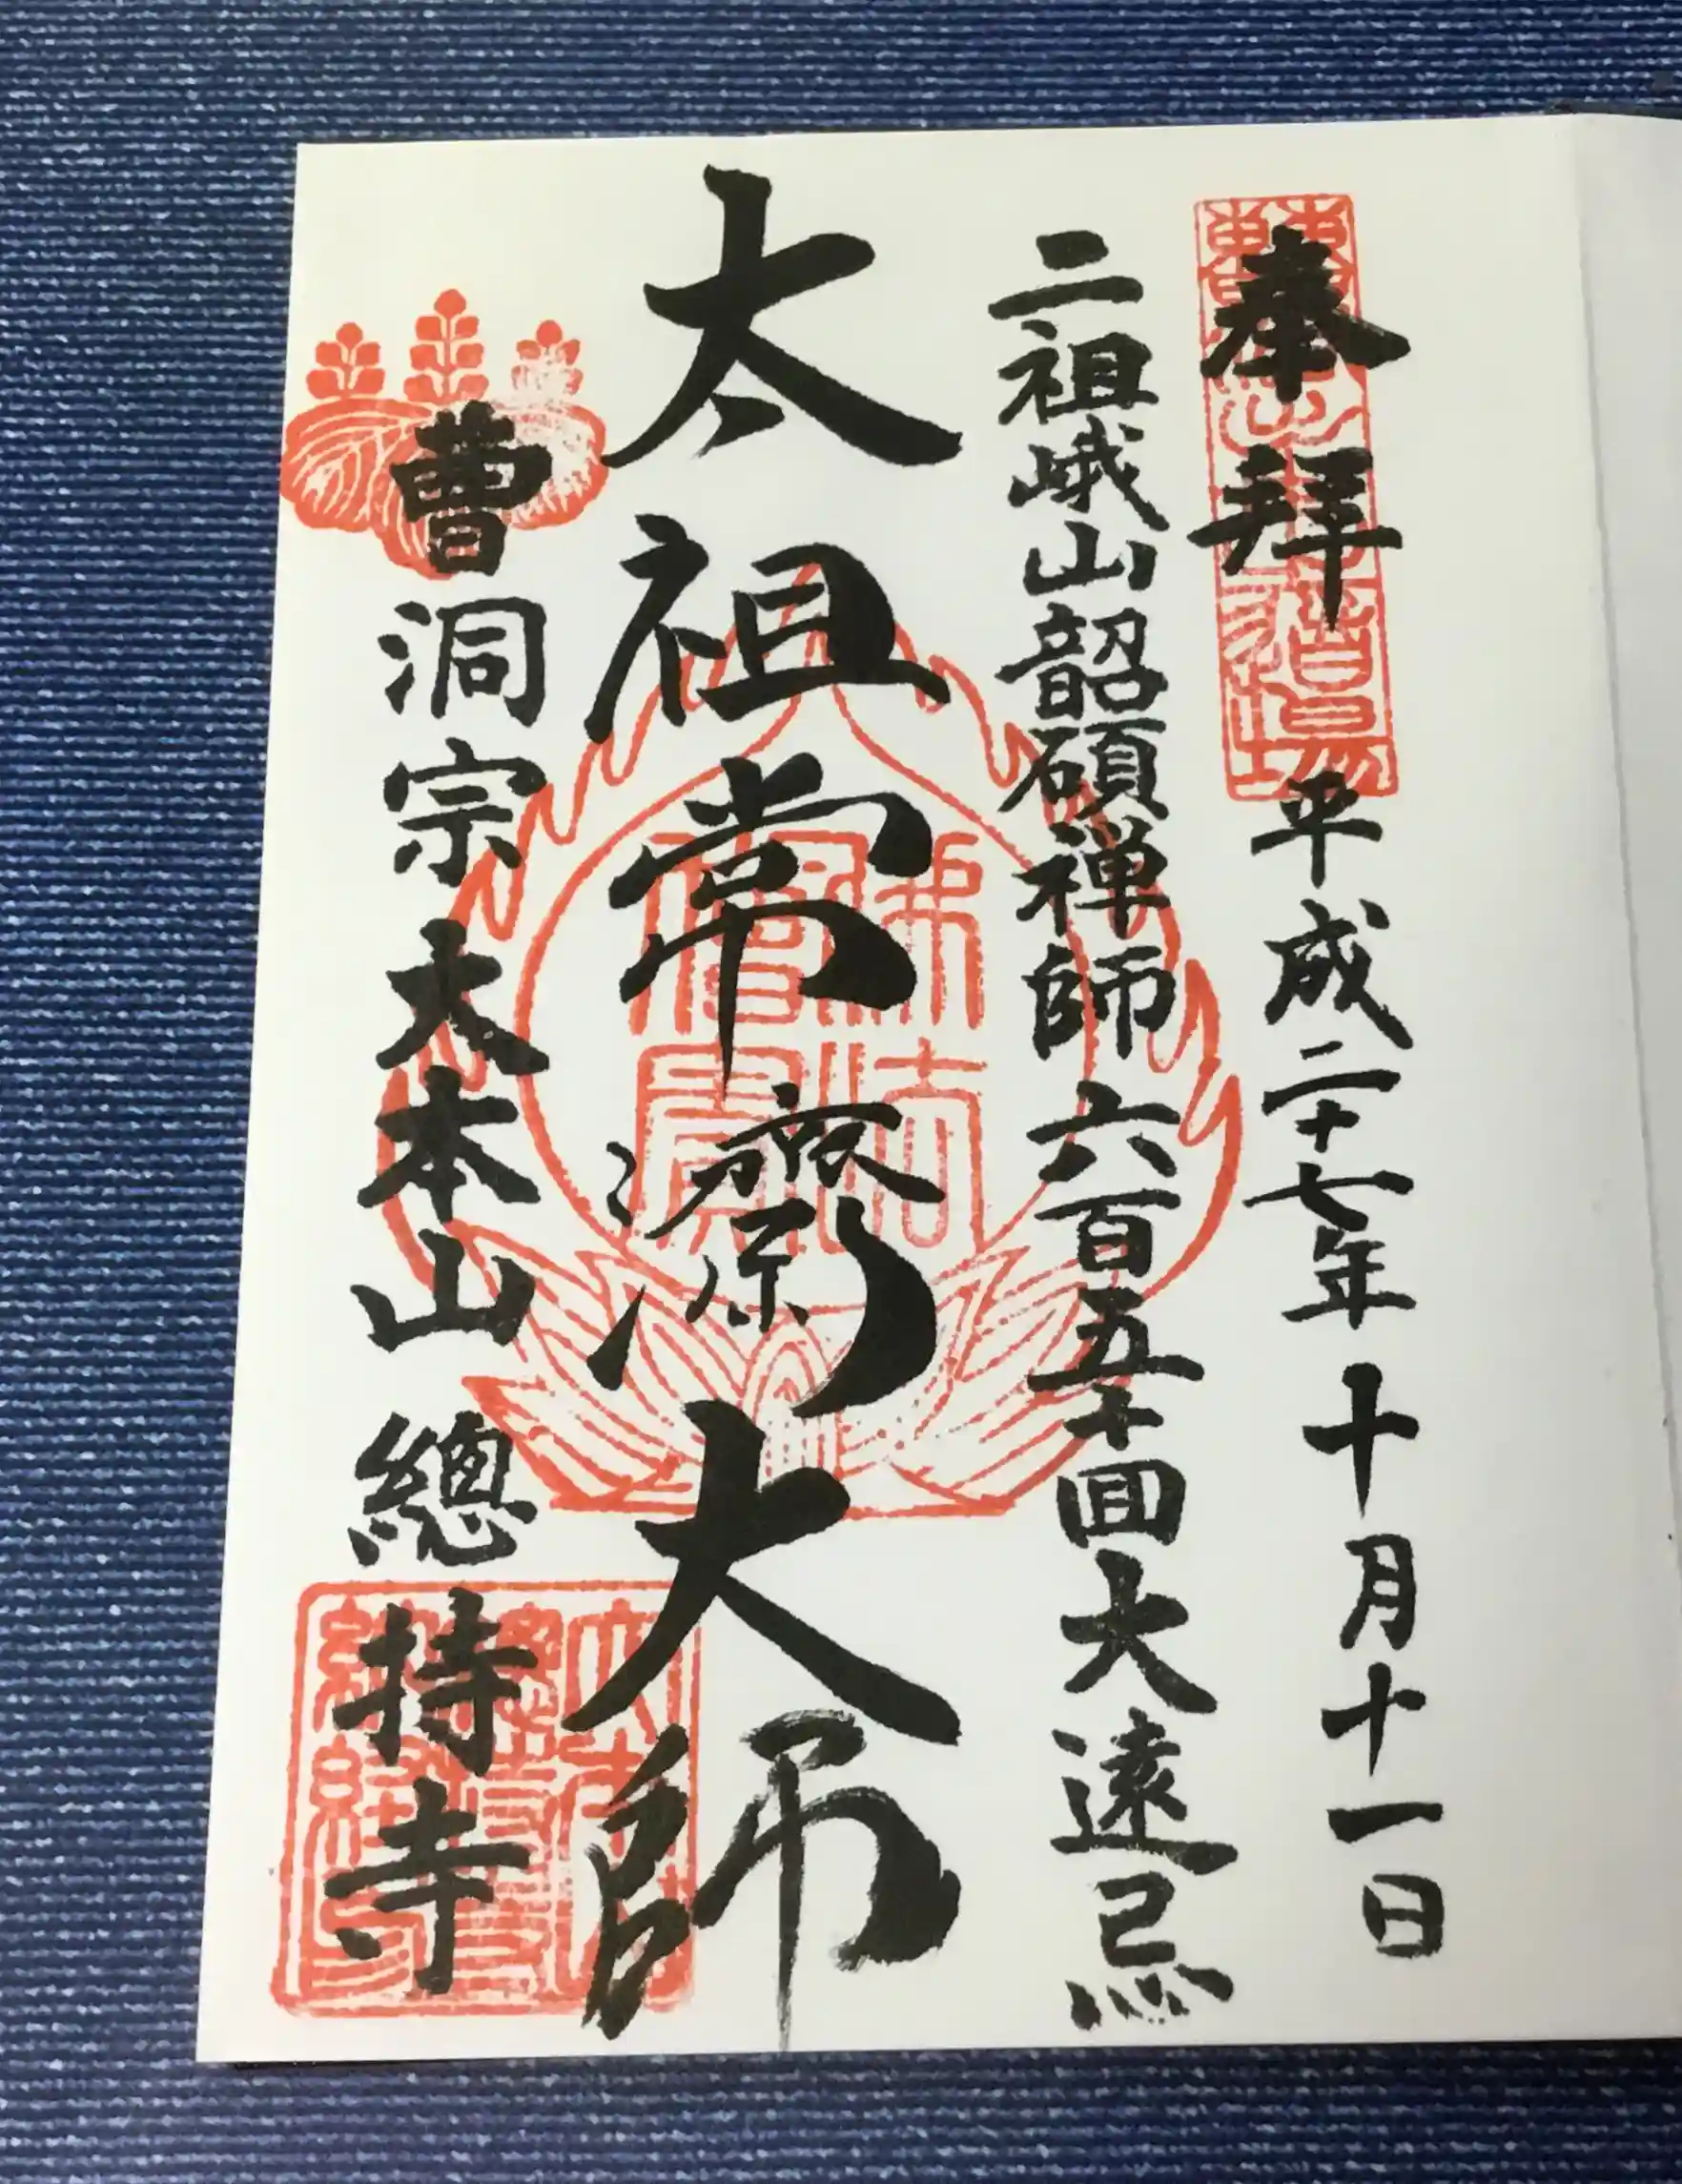 奉拝
平成二十七年十月十一日
二祖峨山韶碩禅師六百五十回大遠忌
太祖常濟大師
曹洞宗大本山總持寺
佛法僧寳